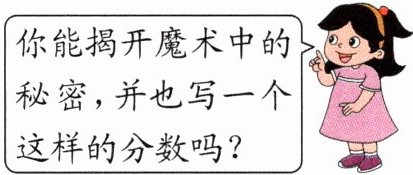 你能揭开魔术中的
秘密，并也写一个
这样的分数吗？